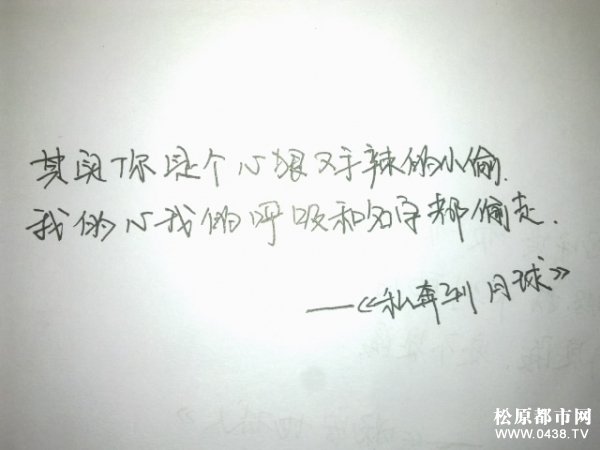 其实你是个心狠又手辣的小偷.
我的心我的呼吸和名字都偷走.
——《私奔到月球》
松原都市网
WWW.0438.TV